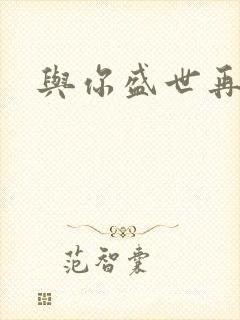 與你盛世再
范智囊